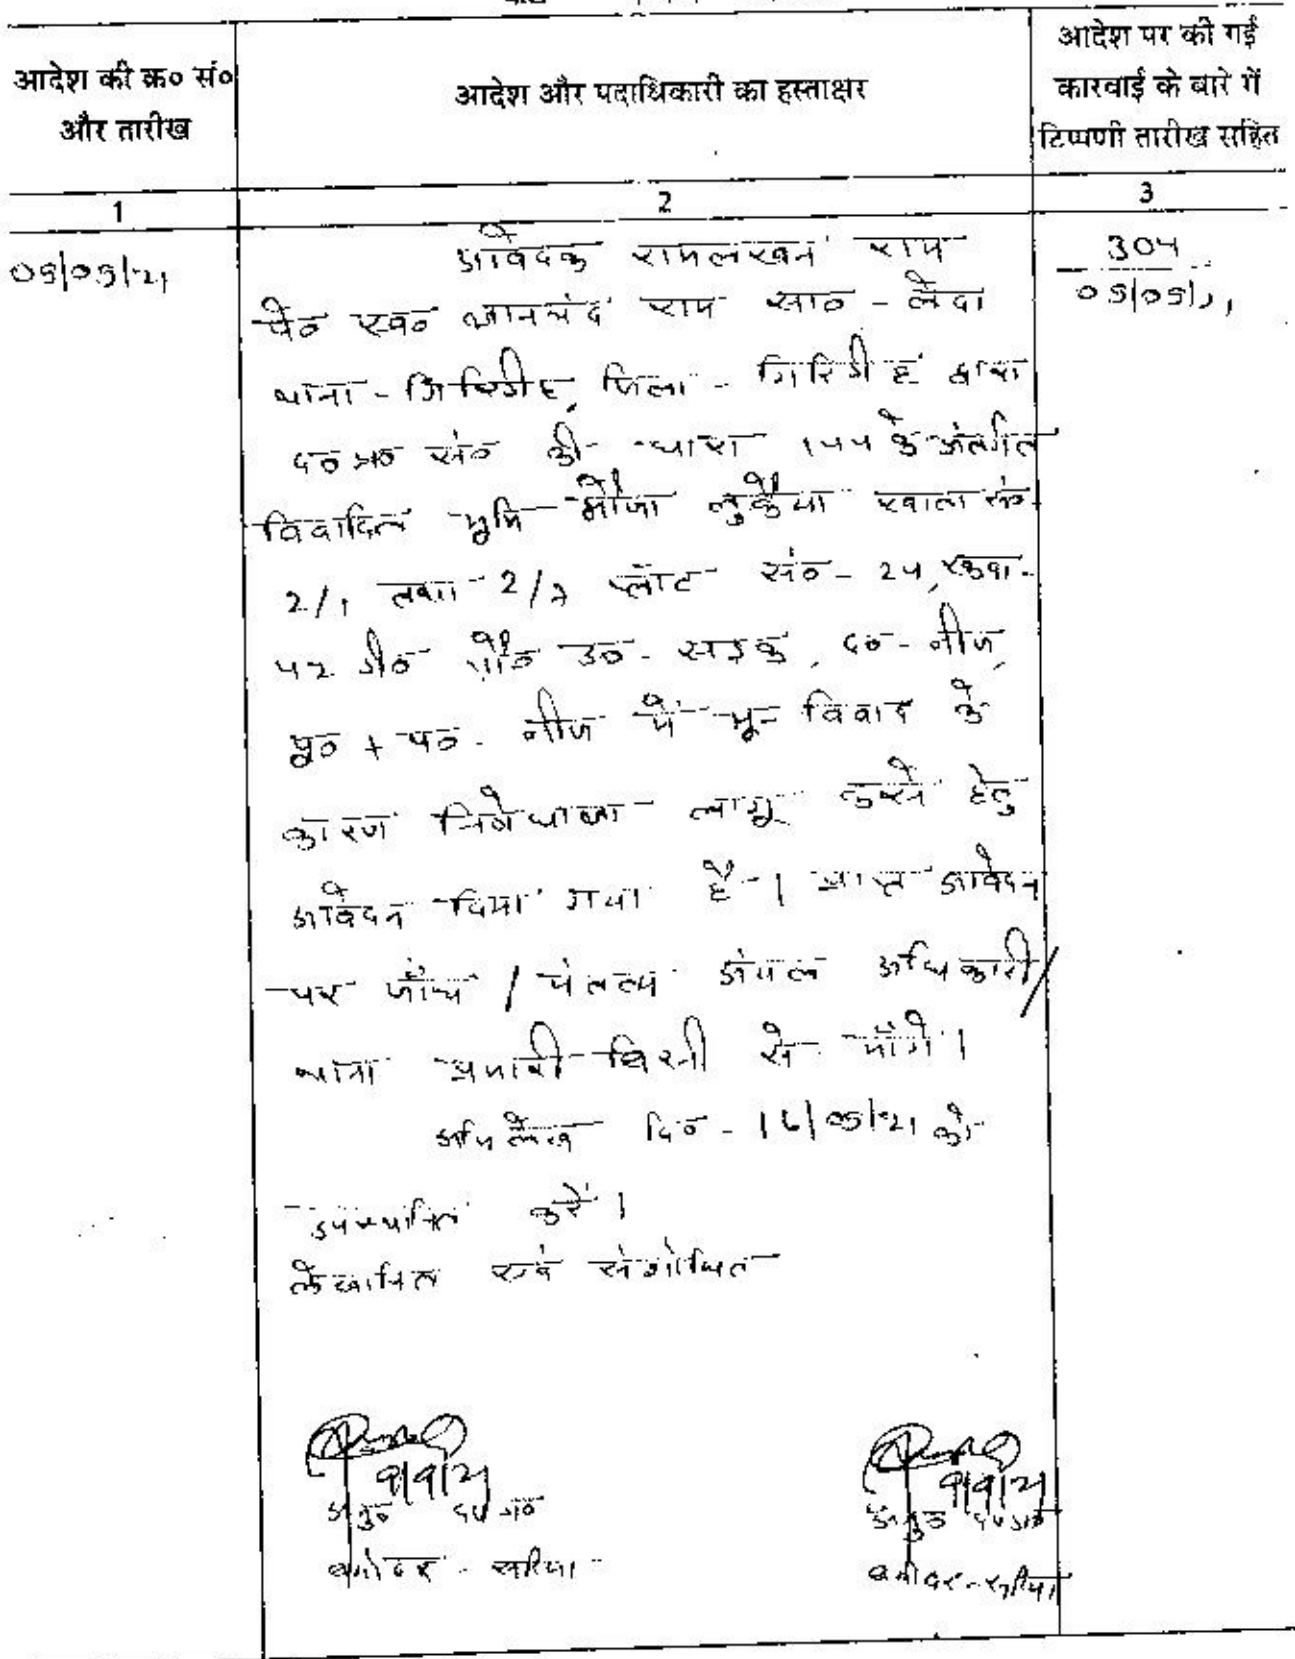 आदेश की क्र० सं०
और तारीख
आदेश और पदाधिकारी का हस्ताक्षर
आदेश पर की गई
कारवाई के बारे में
टिप्पणी तारीख सहित
1
2
3
09/09/21
आवेदक रामलखन राम
पे० स्व० ज्ञानचंद राम सा० - लेदा
थाना - गिरिडीह, जिला - गिरिडीह द्वारा
द० प्र० सं० की धारा 144 के अंतर्गत
विवादित भूमि मौजा लुकैया खाता सं०
2/1 तथा 2/2 प्लॉट सं० - 24, रकवा -
42 डी० चौ० उ० - सड़क, द० - नीज,
पू० + प० - नीज में भू- विवाद के
कारण निषेधाज्ञा लागू करने हेतु
आवेदन दिया गया है । प्राप्त आवेदन
पर जाँच / मंतव्य अंचल अधिकारी /
थाना प्रभारी बिरनी से माँगे ।
अभिलेख दि० - 16/09/21 को
उपस्थापित करें ।
लेखापित एवं संशोधित
9/9/21
अनु० दण्डा०
बगोदर - सरिया
9/9/21
अनु० दण्डा०
बगोदर - सरिया
304
09/09/21